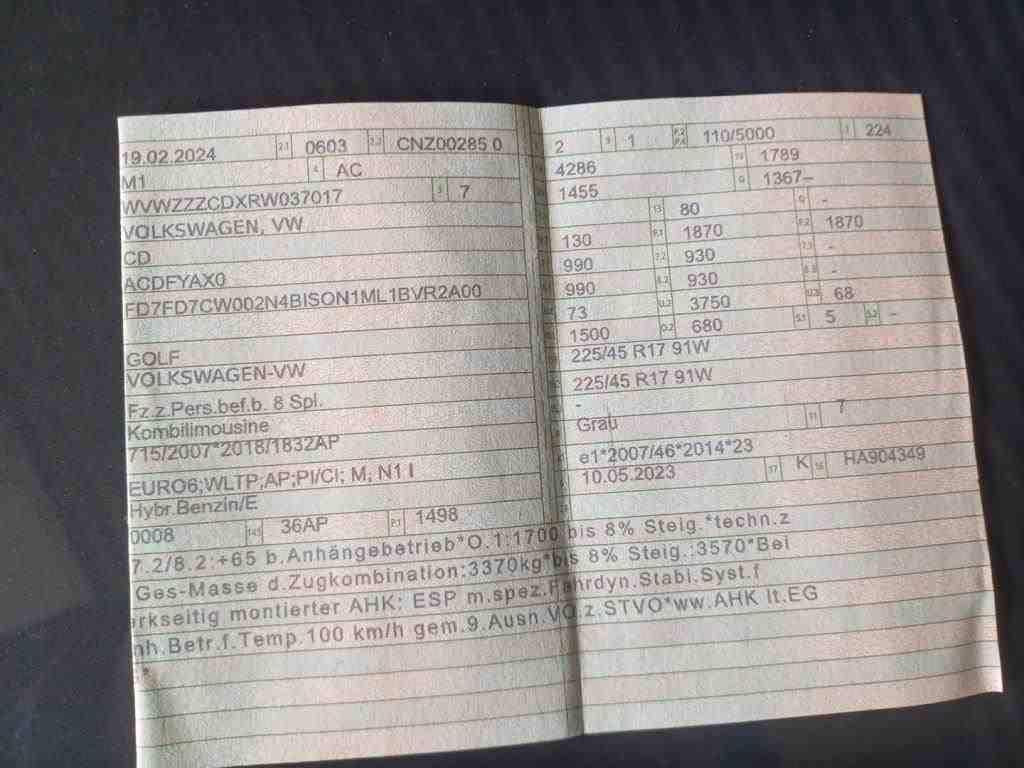 19.02.2024 2.1 0603 2.2 CNZ00285 0
M1 4 AC
WVWZZZCDXRW037017 3 7
VOLKSWAGEN, VW
CD
ACDFYAX0
FD7FD7CW002N4BISON1ML1BVR2A00
GOLF
VOLKSWAGEN-VW
Fz.z.Pers.bef.b. 8 Spl.
Kombilimousine
715/2007*2018/1832AP
EURO6;WLTP;AP;PI/CI; M, N1 I
Hybr.Benzin/E
0008 14.1 36AP P.1 1498
2 9 1 P.2 P.4 110/5000 T 224
4286 19 1789
1455 G 1367–
13 80 Q -
130 F.1 1870 F.2 1870
990 7.2 930 7.3 -
990 8.2 930 8.3 -
73 U.2 3750 U.3 68
1500 O.2 680 S.1 5 S.2 -
225/45 R17 91W
225/45 R17 91W
-
Grau 11 7
e1*2007/46*2014*23
10.05.2023 17 K 16 HA904349
7.2/8.2:+65 b.Anhängebetrieb*O.1:1700 bis 8% Steig.*techn.z
Ges-Masse d.Zugkombination:3370kg*bis 8% Steig.:3570*Bei
rkseitig montierter AHK: ESP m.spez.Fahrdyn.Stabi.Syst.f
nh.Betr.f.Temp.100 km/h gem.9.Ausn.VO.z.STVO*ww.AHK lt.EG